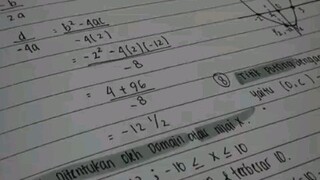 -b
2a
d
-4a
= b² - 4ac
-4(2)
= -2² - 4(2)(-12)
-8
= 4 + 96
-8
= -12 1/2
③ Titik
yaitu (0, c)
Ditentukan oleh Domain atau nilai x.
; -10 ≤ x ≤ 10
terbesar 10.